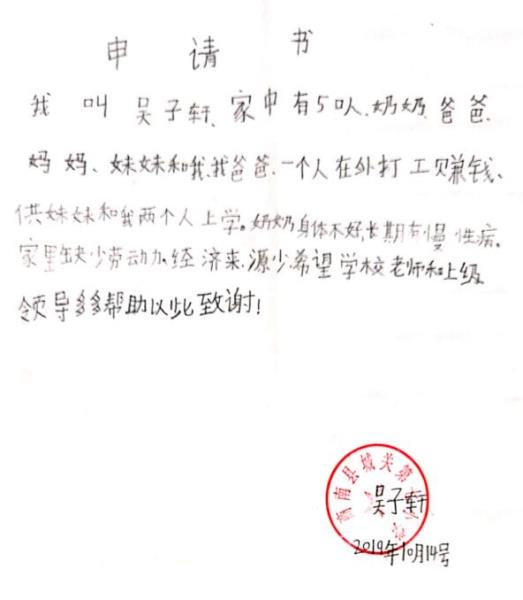 申请书
我叫吴子轩、家中有5口人、奶奶、爸爸、
妈妈、妹妹和我、我爸爸、一个人在外打工赚钱、
供妹妹和我两个人上学。奶奶身体不好,长期有慢性病。
家里缺少劳动力、经济来源少希望学校老师和上级
领导多多帮助以此致谢!
南县城关第小学
吴子轩
2019年10月14号